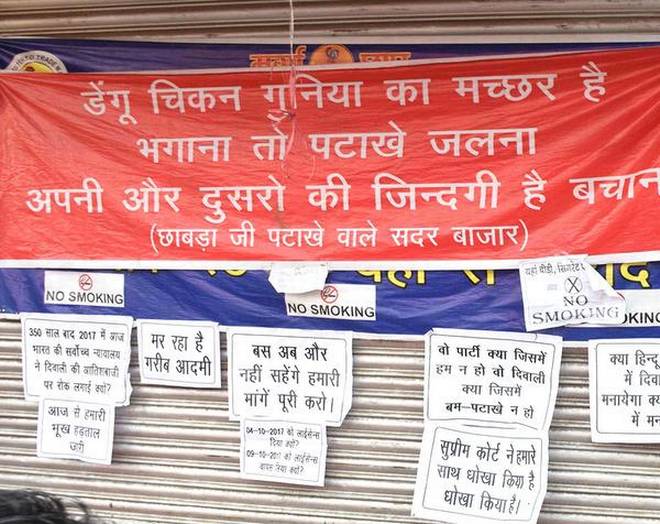 डेंगू चिकन गुनिया का मच्छर है
भगाना तो पटाखे जलना
अपनी और दुसरो की जिन्दगी है बचान
(छाबड़ा जी पटाखे वाले सदर बाजार)
NO SMOKING
NO SMOKING
यहाँ बीडी, सिगरेट
NO
SMOKING
350 साल बाद 2017 में आज
भारत की सर्वोच्च न्यायालय
ने दिवाली की आतिशबाजी
पर रोक लगाई क्यों?
आज से हमारी
भूख हडताल
जारी
मर रहा है
गरीब आदमी
बस अब और
नहीं सहेंगे हमारी
मांगें पूरी करो।
04-10-2017 को लाईसेन्स
दिया क्यों?
को लाईसेन्स
वापस लिया क्यों?
वो पार्टी क्या जिसमें
हम न हो वो दिवाली
क्या जिसमें
बम-पटाखे न हो
सुप्रीम कोर्ट ने हमारे
साथ धोखा किया है
धोखा किया है।
क्या हिन्दू
में दिवा
मनायेगा क्य
में मन